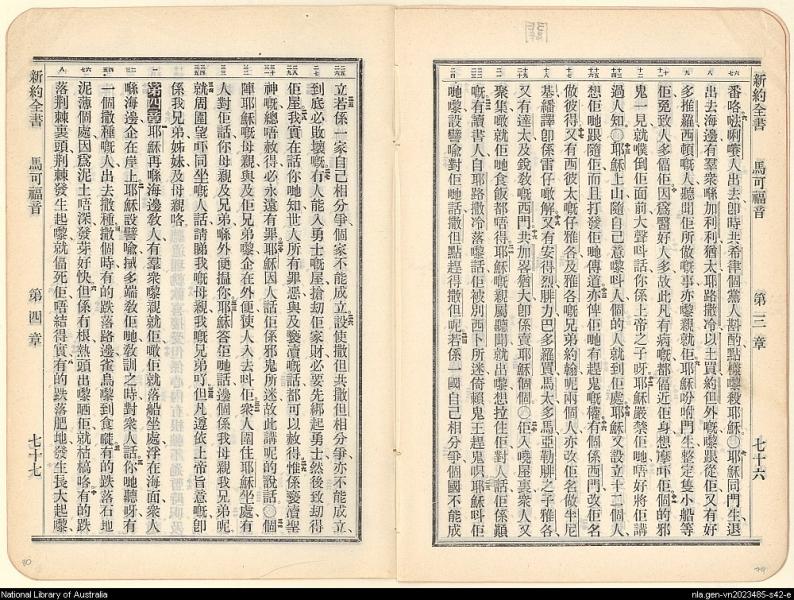 新約全書 馬可福音 第三章 七十六
番咯㗎唎嚫人出去卽時共希律個黨人斟酌點樣嚟殺耶穌〇耶穌同門生退
出去海邊有羣衆喺加利利猶太耶路撒冷以土買約但外嘅嚟跟從佢又有好
多推羅西頓嘅人聽聞佢所做嘅事亦嚟親就佢耶穌吩咐門生整定隻小船等
佢免致人多偪佢因爲醫好人多故此凡有病嘅都偪近佢身想摩吓佢個的邪
鬼一見就噗倒佢面前大聲呌話你係上帝之子呀耶穌嚴禁佢哋唔好將佢講
過人知〇耶穌上山隨自己意嚟呌人個的人就到佢處耶穌又設立十二個人
想佢哋跟隨佢而且打發佢哋傳道亦俾佢哋有趕鬼嘅權有個係西門改佢名
做彼得又有西彼太嘅仔雅各及雅各嘅兄弟約翰呢兩個人亦改佢名做半尼
基繙譯卽係雷仔噉解又有安得烈腓力巴多羅買馬太多馬亞勒腓之子雅各
又有達太及銳敎嘅西門共加畧猶大卽係賣耶穌個個〇佢入嘵屋裏衆人又
聚集噉就佢哋食飯都唔得耶穌嘅親屬聽聞就出嚟想拉住佢對人話佢係顚
嘅有讀書人自耶路撒冷落嚟話佢被別西卜所迷倚賴鬼王趕鬼唄耶穌呌佢
哋嚟設譬喩對佢哋話撒但點趕得撒但呢若係一國自己相分爭個國不能成
立若係一家自己相分爭個家不能成立設使撒但共撒但相分爭亦不能成立
到底必敗壞嘅有人能入勇士嘅屋搶刧佢家財必要先綁起勇士然後致刧得
佢屋我實在話你哋知世人所有罪惡與及褻瀆嘅話都可以赦得惟係褻瀆聖
神嘅總唔赦得必永遠有罪耶穌因人話佢係邪鬼所迷故此講呢的說話〇個
陣耶穌嘅母親與及佢兄弟嚟企在外便使人入去呌佢衆人圍住耶穌坐處有
人對佢話你母親與及兄弟喺外便揾你耶穌答佢哋話邊個係我母親我兄弟呢
就周圍望吓同坐嘅人話請睇我嘅母親我嘅兄弟吖但凡遵依上帝旨意嘅卽
係我兄弟姊妹及母親咯
第四章耶穌再喺海邊敎人有羣衆嚟親就佢噉佢就落船坐處浮在海面衆人
喺海邊企在岸上耶穌設譬喩㨘多端敎佢哋敎訓之時對衆人話你哋聽呀有
一個撒種嘅人出去撒種撒個時有的跌落路邊雀鳥嚟到食嘵有的跌落石地
泥薄個處因爲泥土唔深發芽好快但係冇根熱頭出嚟晒佢就枯槁咯有的跌
落荆棘裏頭荆棘發生起嚟就偪死佢唔結得實有的跌落肥地發生長大起嚟
新約全書 馬可福音 第四章 七十七
National Library of Australia
nla.gen-vn2023485-s42-e